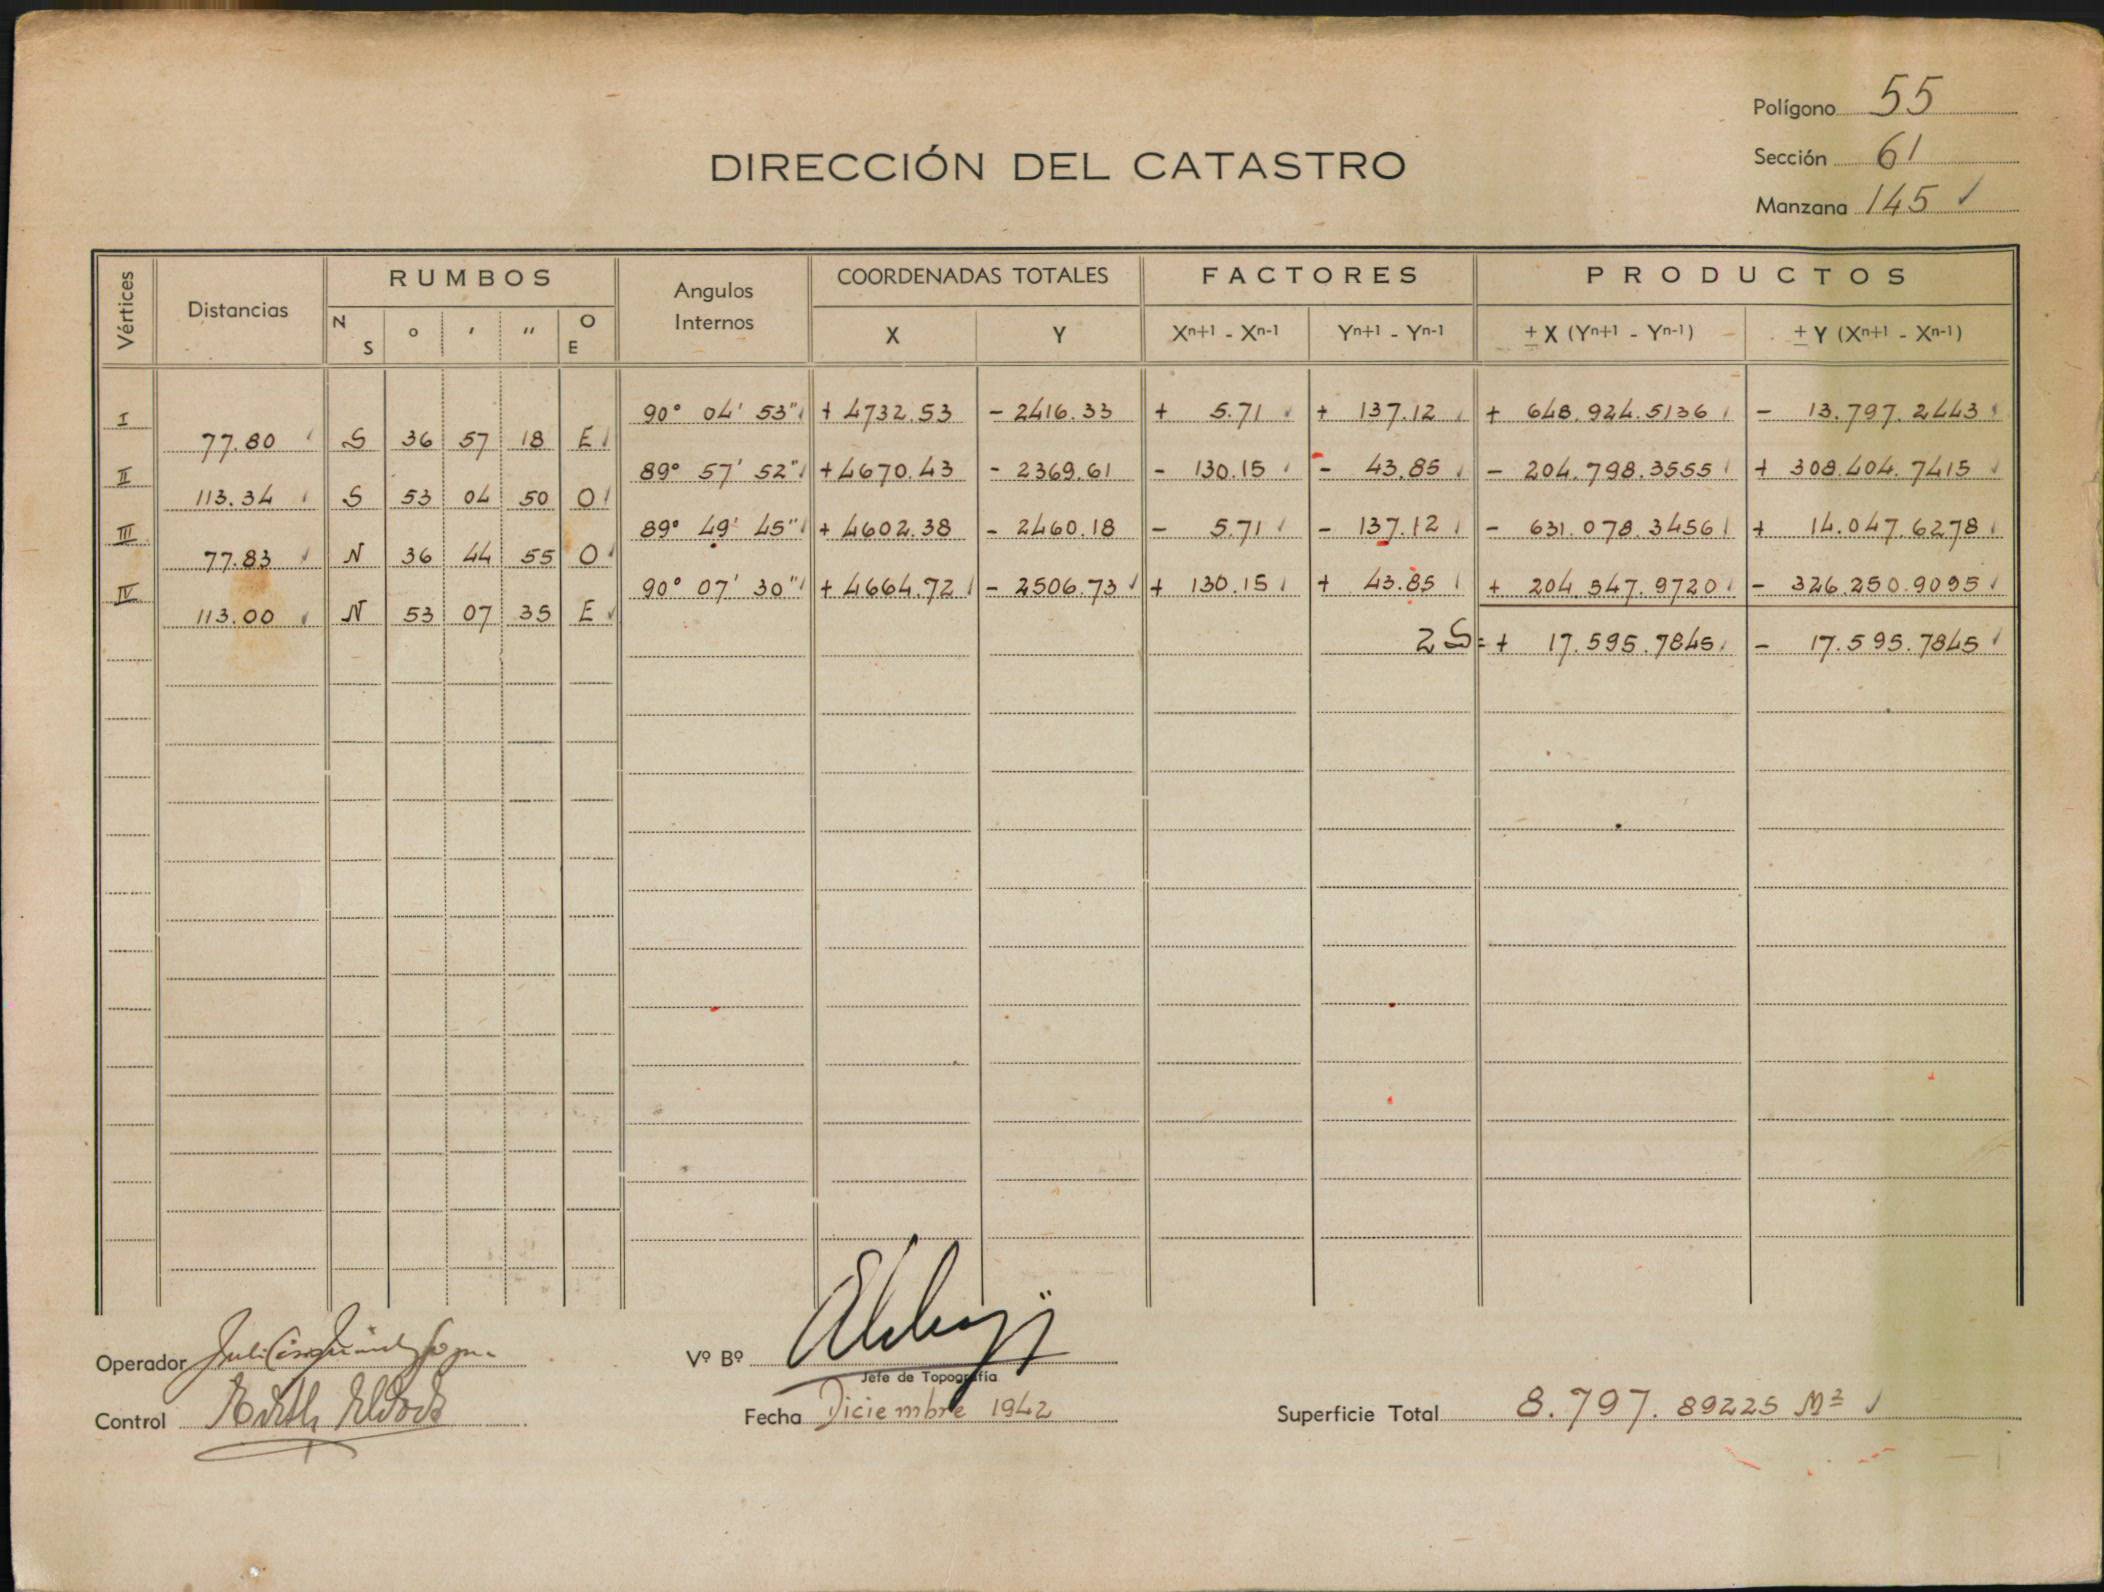 Polígono 55
DIRECCIÓN DEL CATASTRO
Sección 61
Manzana 145 ✓
Vértices Distancias RUMBOS Angulos Internos COORDENADAS TOTALES FACTORES PRODUCTOS
N S o ' " O E X Y Xn+1 - Xn-1 Yn+1 - Yn-1 ± X (Yn+1 - Yn-1) ± Y (Xn+1 - Xn-1)
I 90° 04' 53" + 4732.53 - 2416.33 + 5.71 + 137.12 + 648.924.5136 - 13.797.2443
77.80 S 36 57 18 E
II 89° 57' 52" + 4670.43 - 2369.61 - 130.15 - 43.85 - 204.798.3555 + 308.404.7415
113.34 S 53 04 50 O
III 89° 49' 45" + 4602.38 - 2460.18 - 5.71 - 137.12 - 631.078.3456 + 14.047.6278
77.83 N 36 44 55 O
IV 90° 07' 30" + 4664.72 - 2506.73 + 130.15 + 43.85 + 204.547.9720 - 326.250.9095
113.00 N 53 07 35 E
2 S = + 17.595.7845 - 17.595.7845
Operador
Vº Bº
Jefe de Topografía
Control
Fecha Diciembre 1942
Superficie Total 8.797.89225 M2 ✓